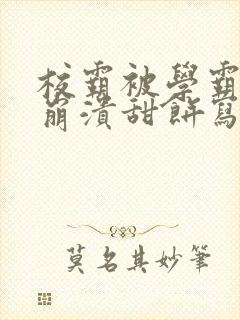 校霸被學霸
崩潰甜餅寫
莫名其妙筆